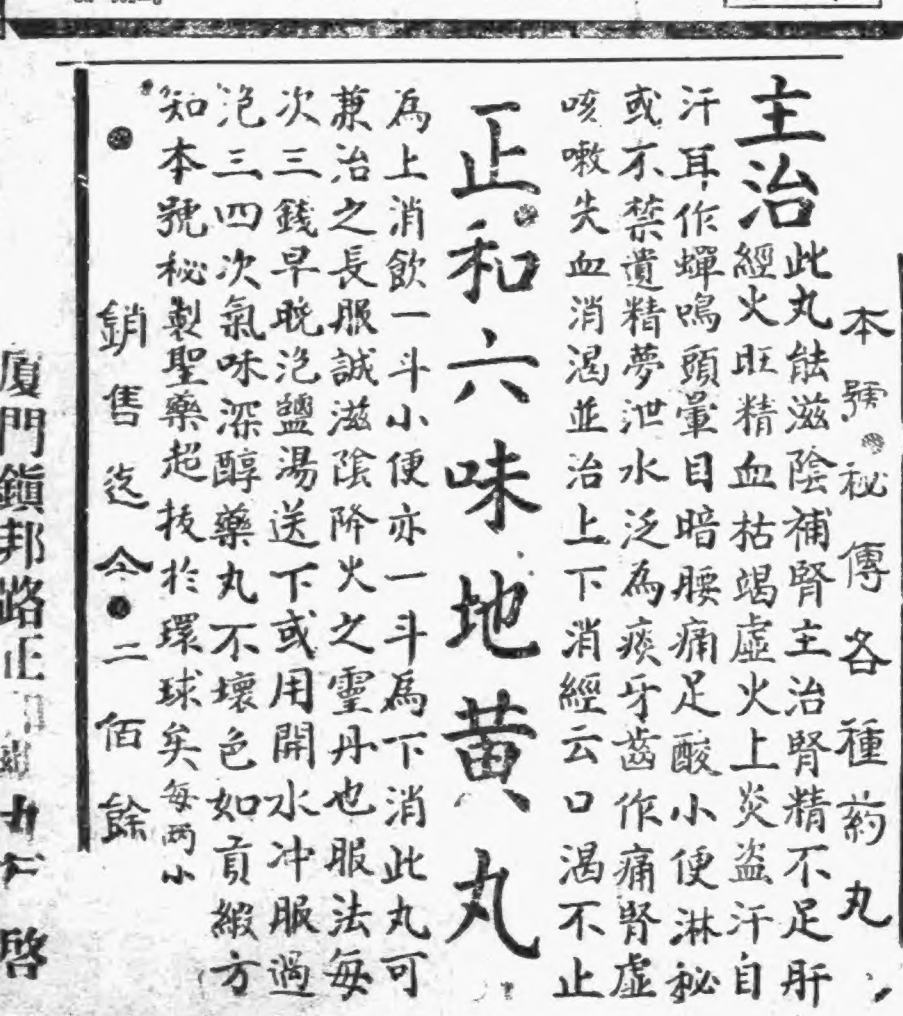 本號秘傳各種葯丸
主治
此丸能滋陰補腎主治腎精不足肝
經火旺精血枯竭虛火上炎盗汗自
汗耳作蟬鳴頭暈目暗腰痛足酸小便淋秘
或不禁遺精夢泄水泛為痰牙齒作痛腎虛
咳嗽失血消渴並治上下消經云口渴不止
正和六味地黃丸
為上消飲一斗小便亦一斗為下消此丸可
兼治之長服誠滋陰降火之靈丹也服法每
次三錢早晚泡鹽湯送下或用開水冲服過
泡三四次氣味深醇藥丸不壞色如貢緞方
知本號秘製聖藥超拔於環球矣每両小
銷售迄今二佰餘
廈門鎮邦路正
啓